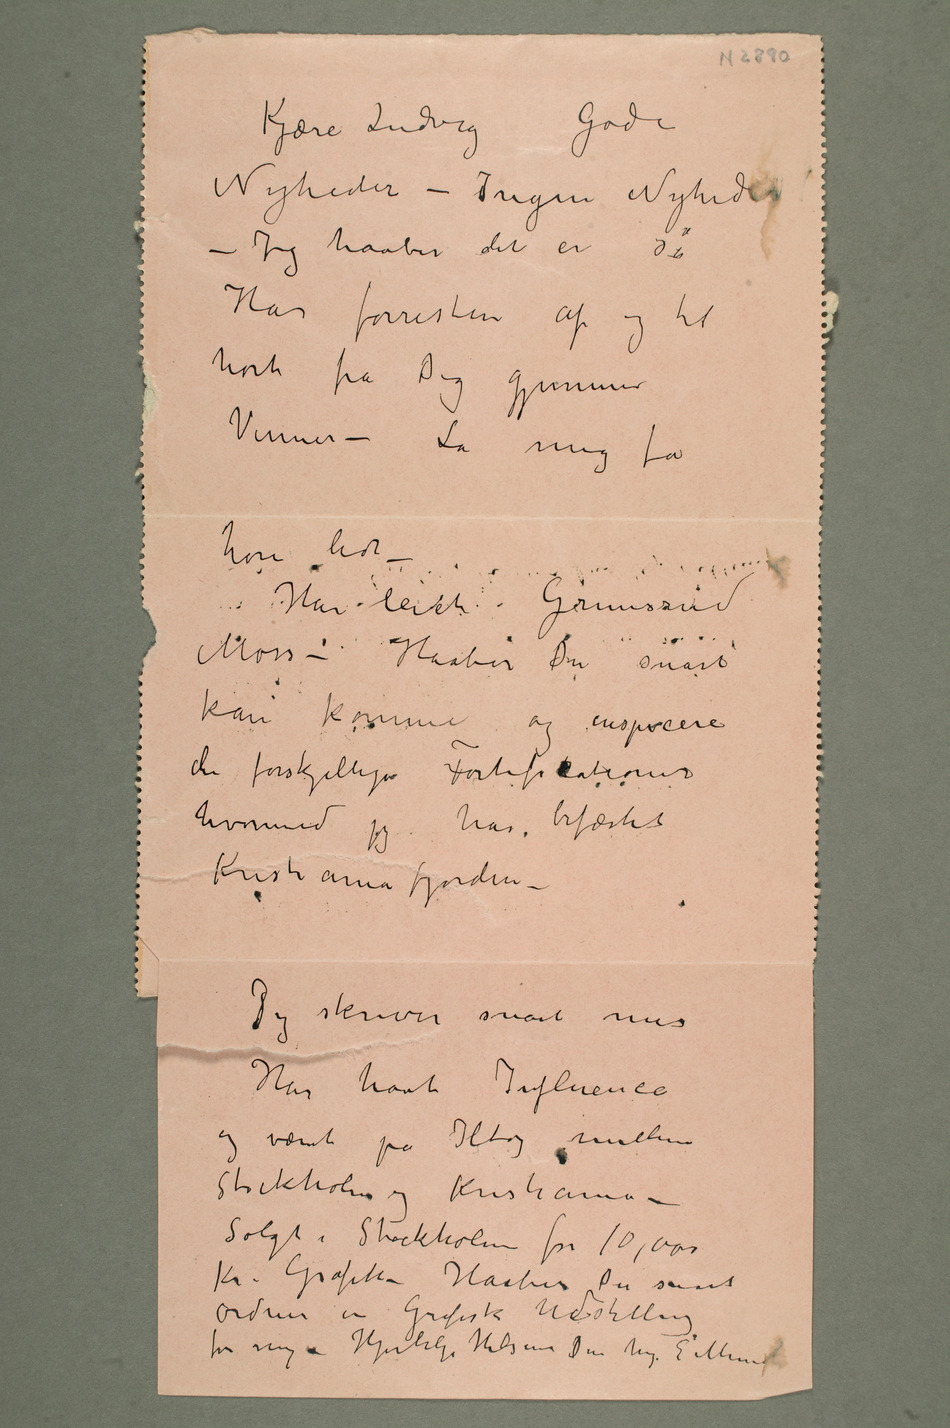 N 2890
Kjære Ludvig Gode
Nyheder – Ingen Nyheder
– Jeg haaber det er så
Har forresten af og til
hørt fra Dig gjennem
Venner – La mig få
høre lidt –
Har leiet Grimsrød
Moss – Haaber Du snart
kan komme og inspicere
de forskjellige Fortifikationer
hvormed jeg har befæstet
Kristianiafjorden –
Jeg skriver snart mer
Har havt Influenca
og været på Iltog mellem
Stockholm og Kristiania –
Solgt i Stockholm for 10,000
Kr. Grafik – Haaber Du snart
ordner en Grafisk Udstilling
for mig – Hjertelige Hilsener Din hng. E Munch